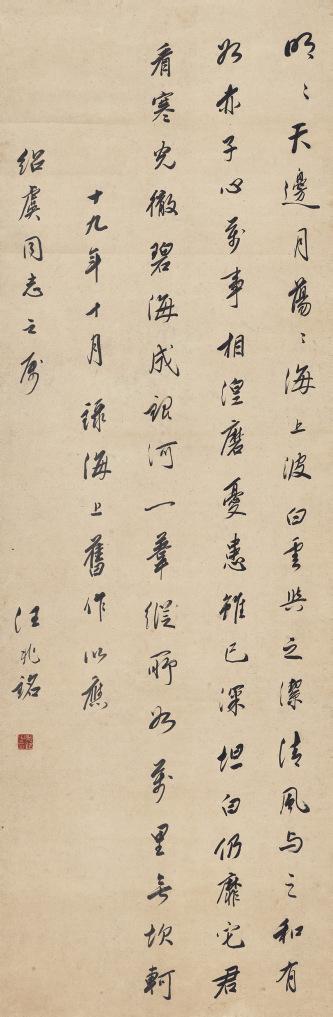 明〻天邊月蕩〻海上波白雲與之潔清風与之和有
如赤子心萬事相湼磨憂患雖已深坦白仍靡它君
看寒光徹碧海成銀河一葦縱所如萬里無坎軻
十九年十月録海上舊作以應
紹虞同志之属
汪兆銘